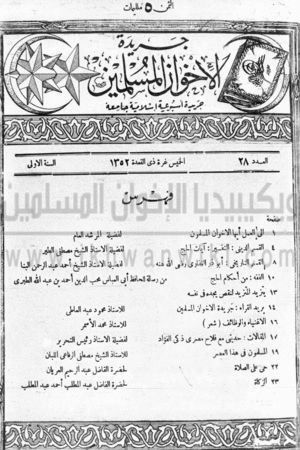 الثمن ٥ مليمات
جريدة
الإخوان المسلمين
جريدة أسبوعية إسلامية جامعة
العدد ٢٨ الخميس غرة ذي القعدة ١٣٥٢ السنة الاولى
فهرس
صفحة
١ الى العمل أيها الاخوان المسلمون لفضيلة المرشد العام
٤ القسم الديني : التفسير : آيات الحج لفضيلة الاستاذ الشيخ مصطفى الطير
القسم التاريخي : أبو ذر الغفاري رضي الله عنه لفضيلة الاستاذ الشيخ أحمد عبد الرحمن البنا
١٠ الفقه : من أحكام الحج من رسالة للحافظ أبي العباس محب الدين أحمد بن عبد الله الطبري
١٣
١٤ بريد القراء : جريدة الاخوان المسلمين للاستاذ محمود عبد العاطي
١٦ الاغنياء والوظائف ( شعر ) للاستاذ محمد الأسمر
١٧ المقالات : حديثي مع فلاح مصري ذكي الفؤاد لفضيلة الاستاذ رئيس التحرير
١٩ المسلمون في هذا العصر للاستاذ الشيخ مصطفى الرفاعي اللبان
٢٢ حي على الصلاة لحضرة الفاضل عبد الرحيم العريان
٢٣ الزكاة لحضرة الفاضل عبد المطلب أحمد عبد المطلب
ويكيبيديا الإخوان المسلمين